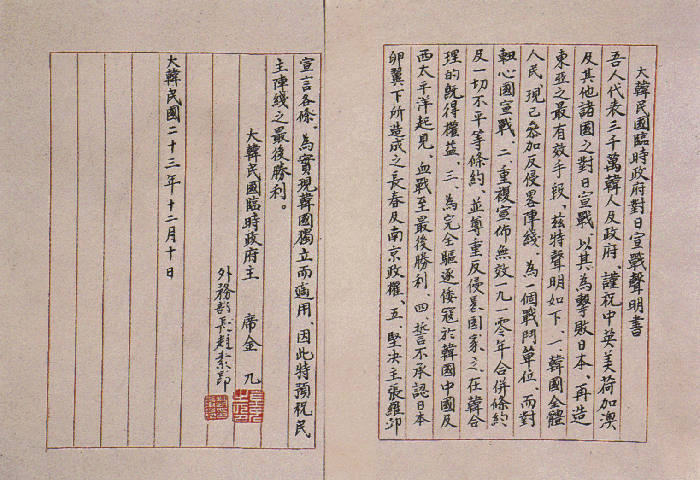 大韓民國臨時政府對日宣戰聲明書
吾人代表三千萬韓人及政府、謹祝中英美荷加澳
及其他諸國之對日宣戰、以其為擊敗日本、再造
東亞之最有效手段、茲特聲明如下、一、韓國全體
人民、現已參加反侵畧陣綫、為一個戰鬥單位、而對
軸心國宣戰、二、重複宣佈無效一九一零年合併條約
及一切不平等條約、並尊重反侵畧國家之、在韓合
理的既得權益、三、為完全驅逐倭寇於韓國中國及
西太平洋起見、血戰至最後勝利、四、誓不承認日本
卵翼下所造成之長春及南京政權、五、堅決主張羅邱
宣言各條、為實現韓國獨立而適用、因此特預祝民
主陣綫之最後勝利。
大韓民國臨時政府主 席金 九
外務部長趙素昂
大韓民國二十三年十二月十日